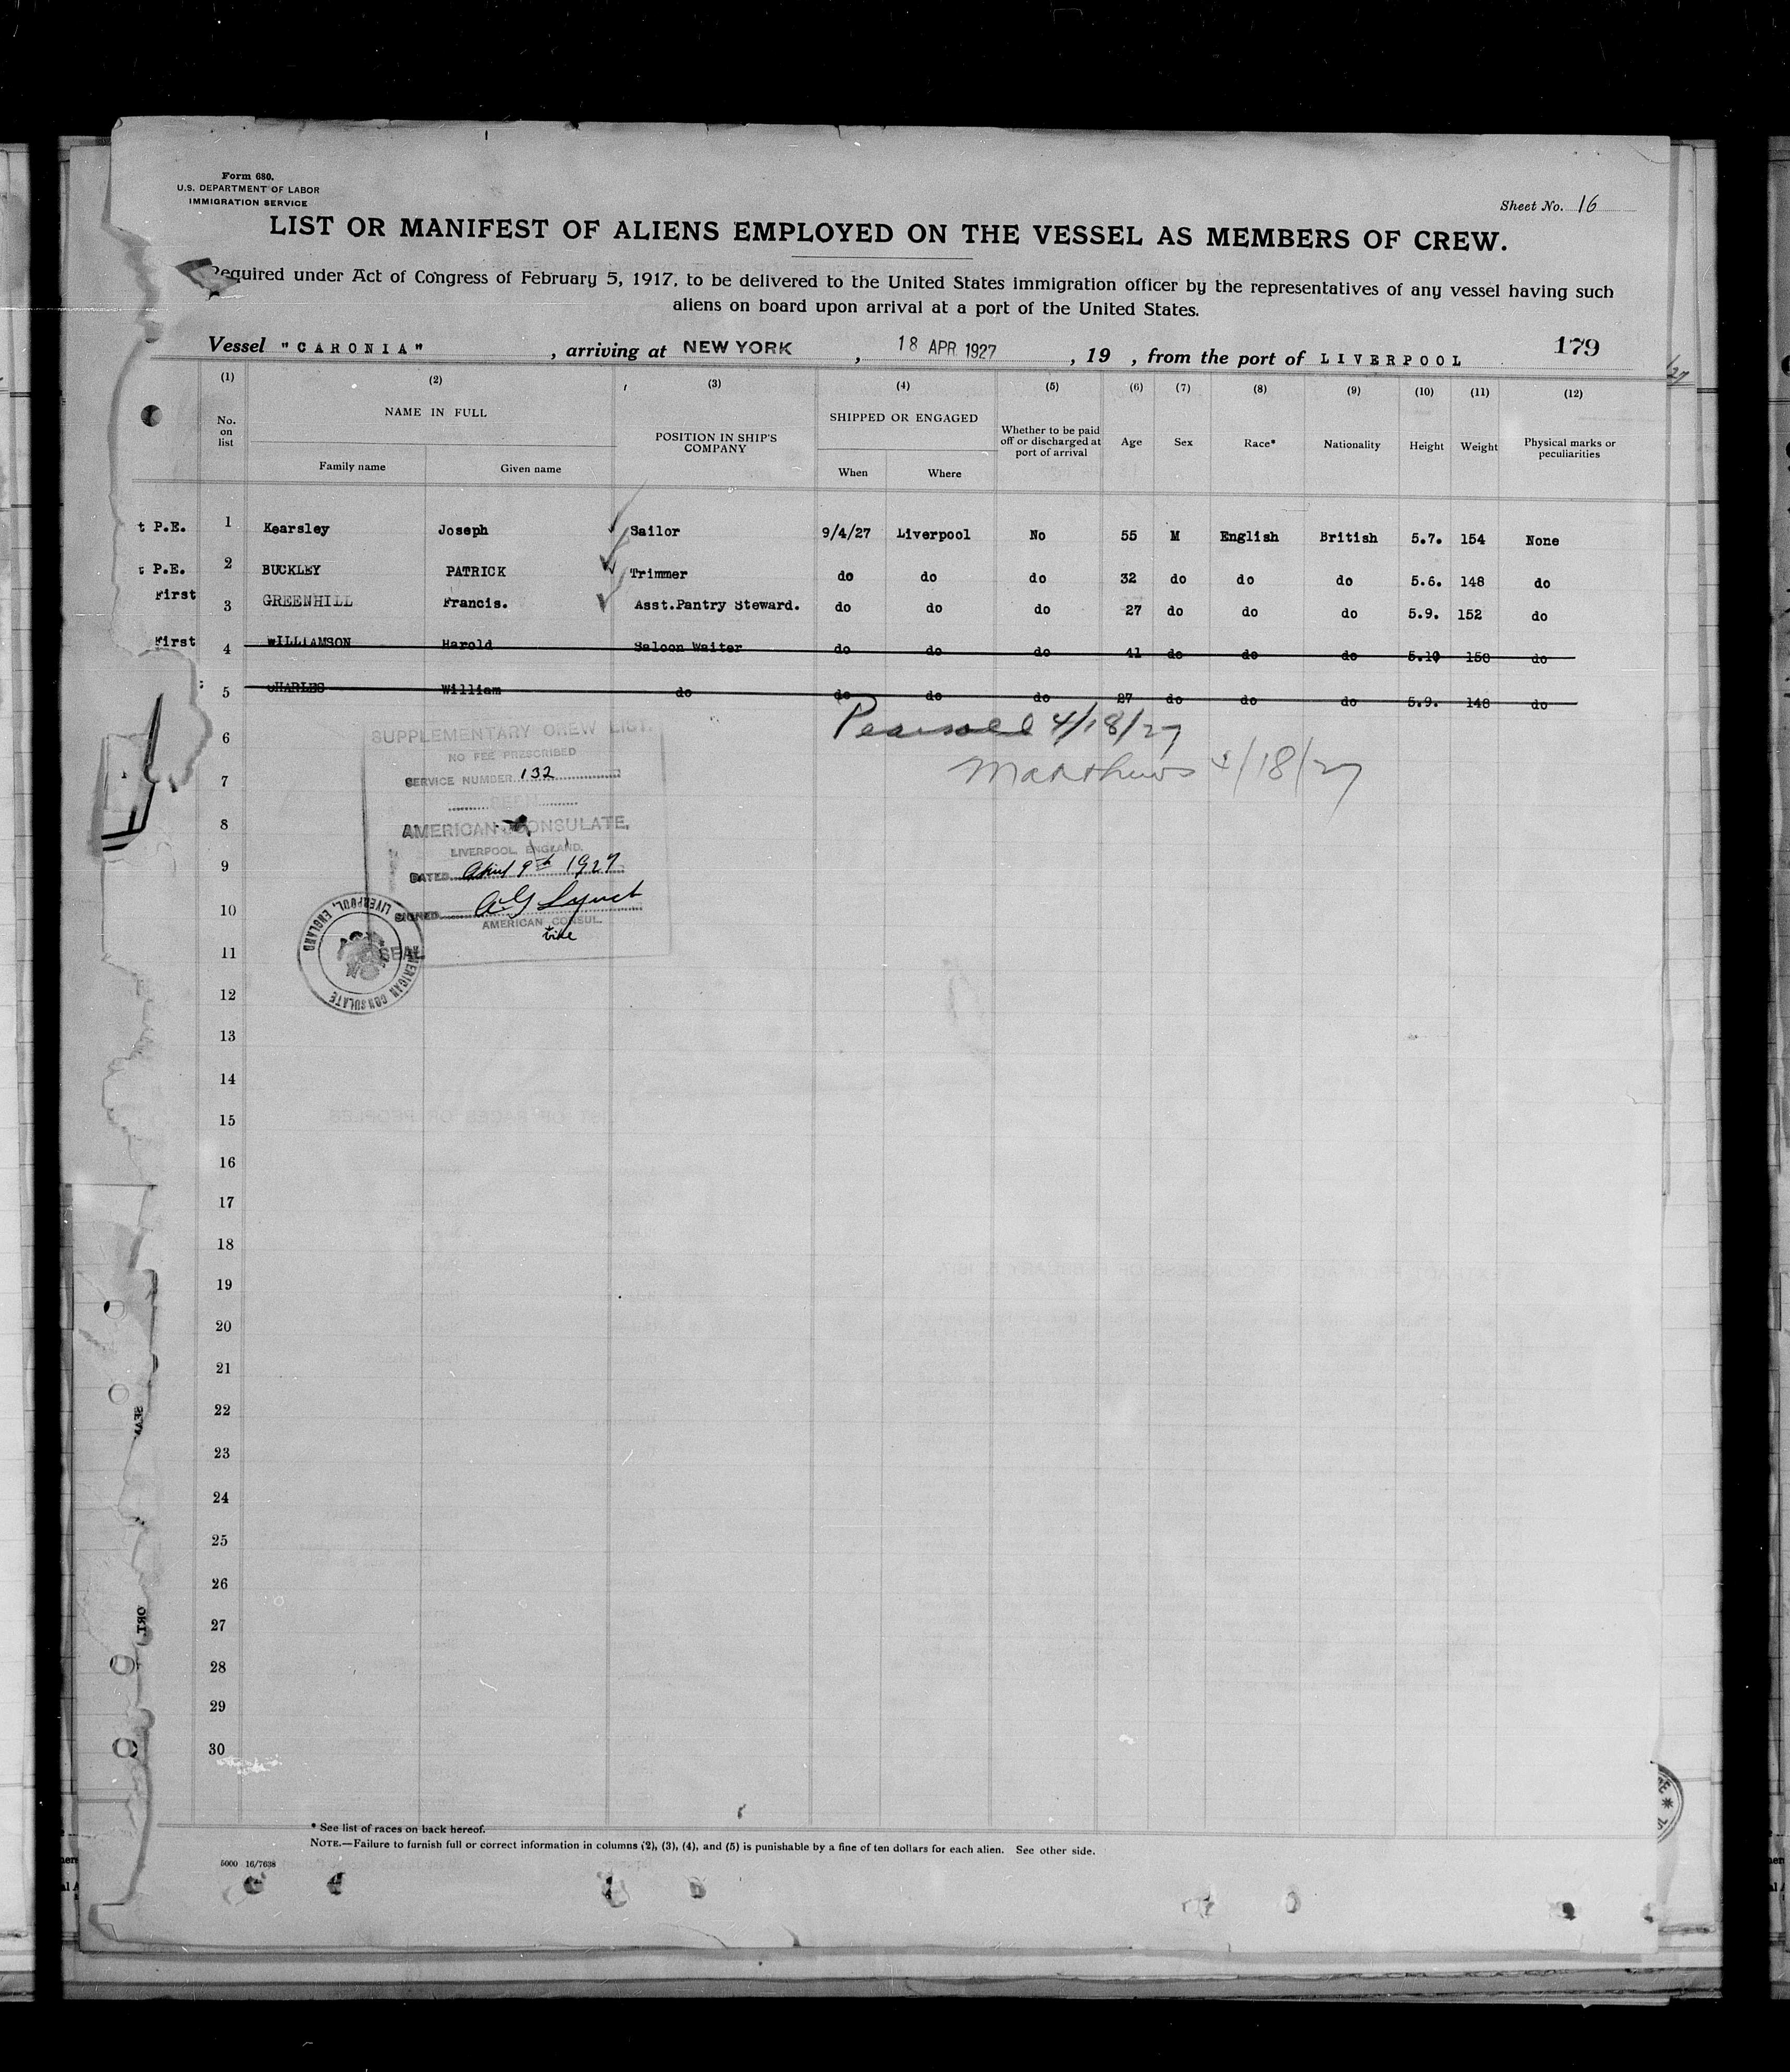 Form 680.
U.S. DEPARTMENT OF LABOR
IMMIGRATION SERVICE
Sheet No. 16
LIST OR MANIFEST OF ALIENS EMPLOYED ON THE VESSEL AS MEMBERS OF CREW.
Required under Act of Congress of February 5, 1917, to be delivered to the United States immigration officer by the representatives of any vessel having such
aliens on board upon arrival at a port of the United States.
Vessel "CARONIA" , arriving at NEW YORK , 18 APR 1927 , 19 , from the port of LIVERPOOL 179
(1) (2) (3) (4) (5) (6) (7) (8) (9) (10) (11) (12)
No. on list NAME IN FULL Family name Given name POSITION IN SHIP'S COMPANY SHIPPED OR ENGAGED When Where Whether to be paid off or discharged at port of arrival Age Sex Race* Nationality Height Weight Physical marks or peculiarities
t P.E. 1 Kearsley Joseph Sailor 9/4/27 Liverpool No 55 M English British 5.7. 154 None
t P.E. 2 BUCKLEY PATRICK Trimmer do do do 32 do do do 5.6. 148 do
First 3 GREENHILL Francis. Asst.Pantry Steward. do do do 27 do do do 5.9. 152 do
First 4 WILLIAMSON Harold Saloon Waiter do do do 41 do do do 5.10 158 do
5 CHARLES William do do do do 27 do do do 5.9. 148 do
4/18/27
6
Matthews 4/18/27
7
8
9
10
11
12
13
14
15
16
17
18
19
20
21
22
23
24
25
26
27
28
29
30
SUPPLEMENTARY CREW LIST.
NO FEE PRESCRIBED
SERVICE NUMBER 132
SEEN
AMERICAN CONSULATE,
LIVERPOOL, ENGLAND.
DATED April 9th 1927
SIGNED A G Lynch
AMERICAN CONSUL.
vice
SEAL
AMERICAN CONSULATE LIVERPOOL, ENGLAND
* See list of races on back hereof.
NOTE.—Failure to furnish full or correct information in columns (2), (3), (4), and (5) is punishable by a fine of ten dollars for each alien. See other side.
5000 16/7638